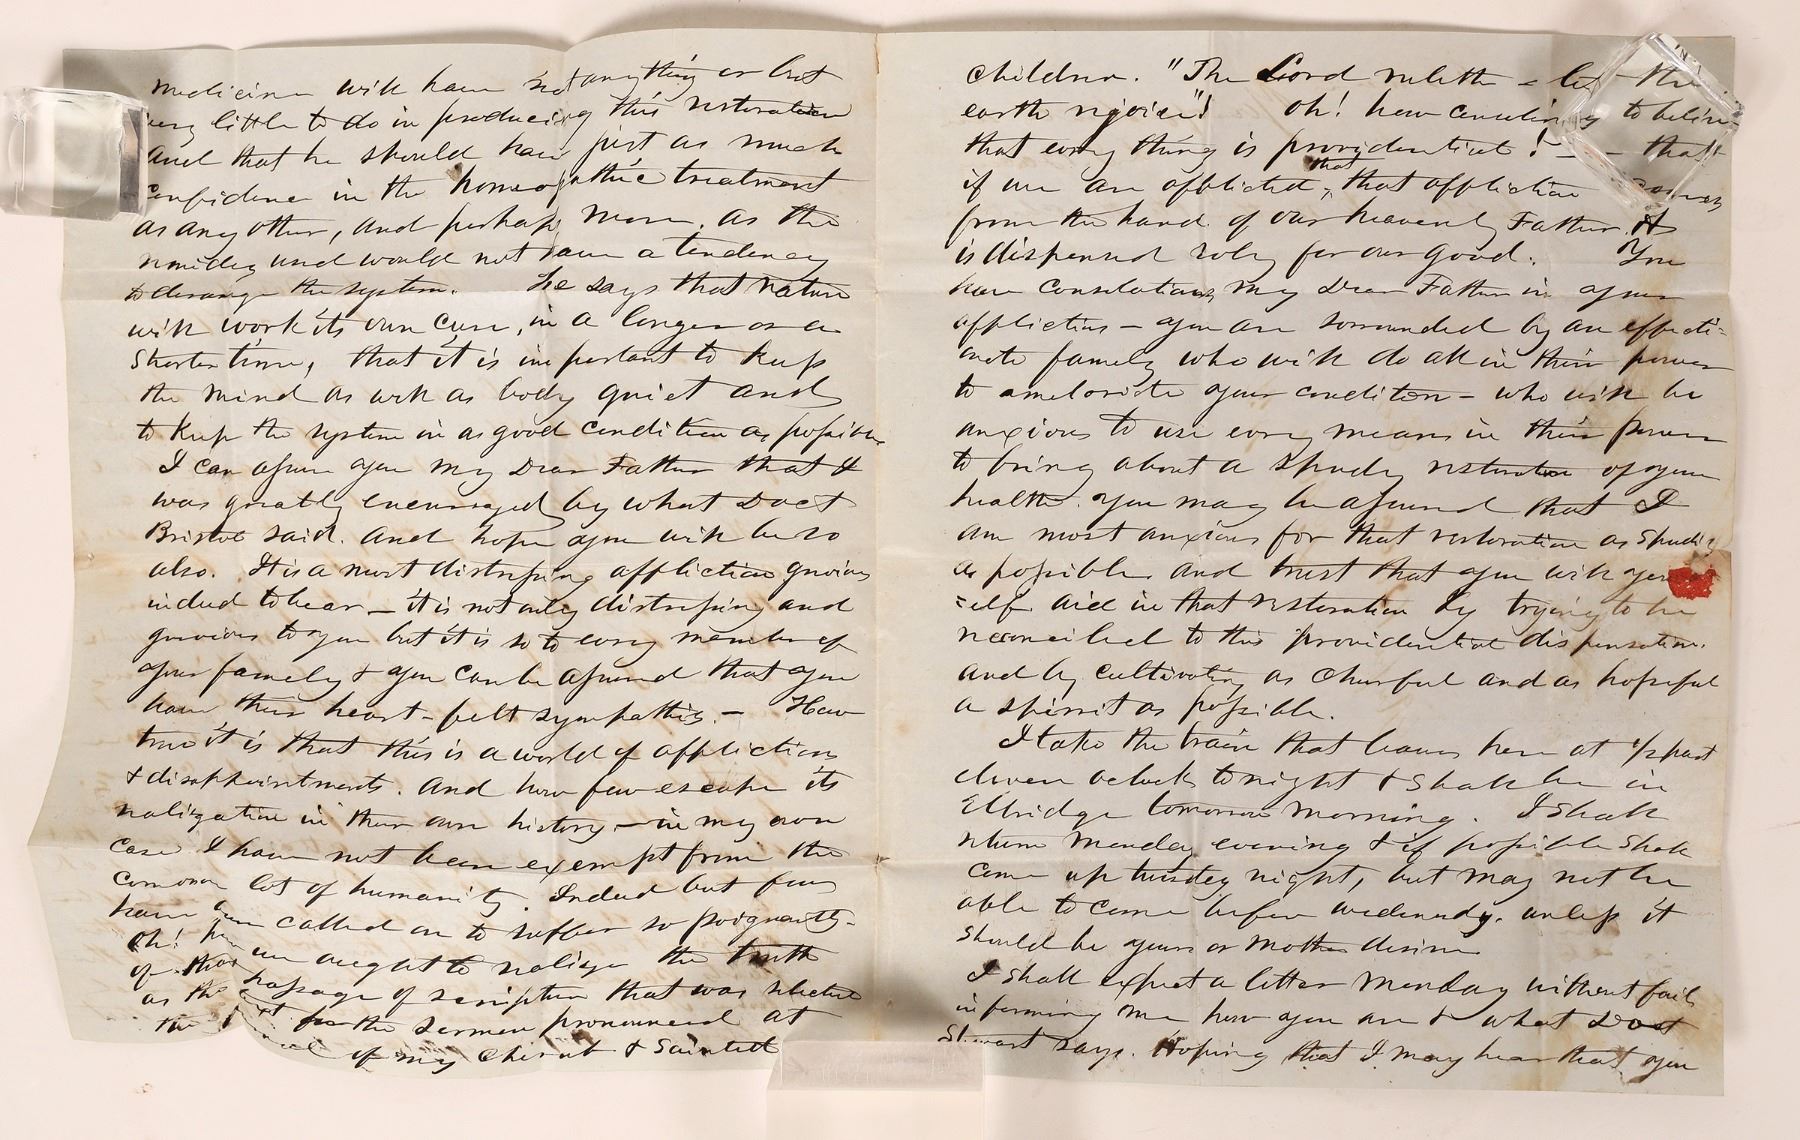 medicine will have not anything or but
very little to do in producing this restoration
and that he should have just as much
confidence in the homeopathic treatment
as any other, and perhaps more, as the
remidey used would not have a tendency
to derange the system. He says that nature
will work its own cure, in a longer or a
shorter time, that it is important to keep
the mind as well as body quiet and
to keep the system in as good condition as possible
I can assure you my Dear Father that I
was greatly encouraged by what Doct
Bristol said. and hope you will be so
also. It is a most distressing affliction grevious
indeed to bear – it is not only distressing and
grevious to you but it is so to every member of
your family & you can be assured that you
have their heart-felt sympathies. – How
true it is that this is a world of affliction
& disappointments. And how few escape its
realization in their own history – in my own
case I have not been exempt from the
common lot of humanity. Indeed but few
have been called on to suffer so poignantly.
Oh! how we ought to realize the truth
of that passage of scripture that was selected
as the text for the sermon pronounced at
the funeral of my cherub & sainted
children. "The Lord ruleth – let the
earth rejoice"! Oh! how consoling to believe
that every thing is providential! – – that
if we are afflicted, that that affliction comes
from the hand of our heavenly Father. &
is dispensed soley for our good. You
have consolations my Dear Father in your
affliction – you are sorrounded by an effecti-
onate family who will do all in their power
to ameloriate your conditon – who will be
anxious to use every means in their power
to bring about a speedy restoration of your
health. You may be assured that I
am most anxious for that restoration as speedily
as possible and trust that you will your
=self aid in that restoration by trying to be
reconciled to this providential dispensation.
and by cultivating as cheerful and as hopeful
a spirrit as possible.
I take the train that leaves here at 1/2 past
eleven oclock to night & shall be in
Elbridge tomorrow morning. I shall
return Monday evening & if possible shall
come up tuesday night, but may not be
able to come before wedensdy. unless it
should be yours or Mothers desire
I shall expect a letter Monday without fail
informing me how you are & what Doct
Stewart says. Hoping that I may hear that you